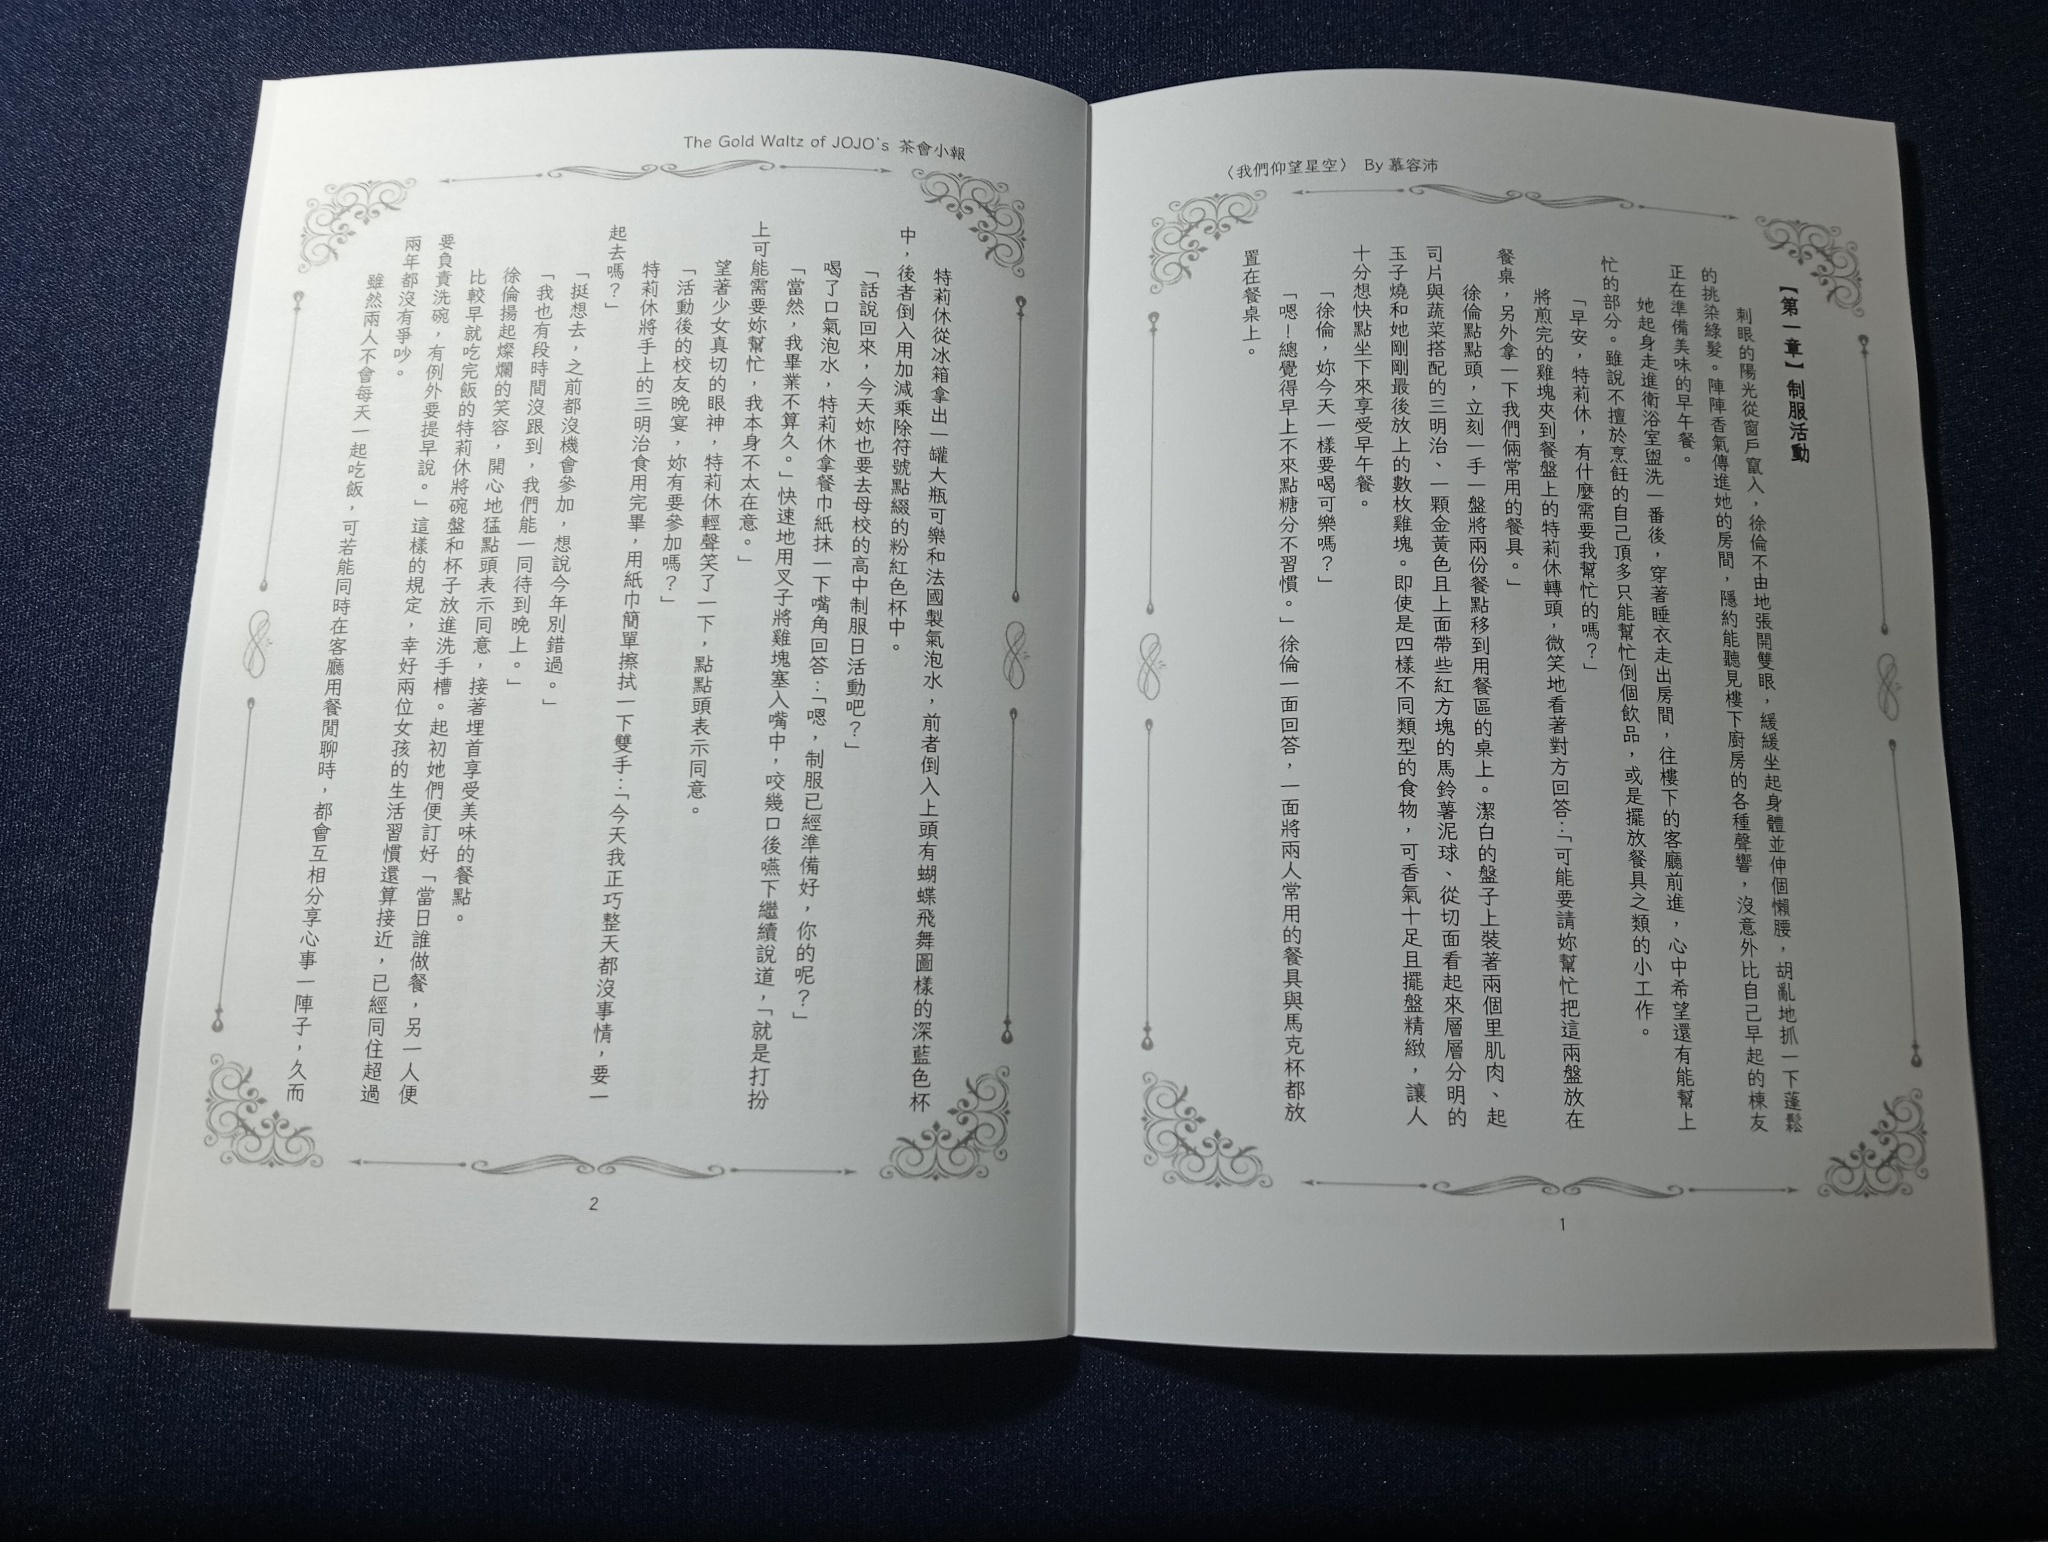 〈我們仰望星空〉 By 慕容沛
【第一章】制服活動
刺眼的陽光從窗戶竄入，徐倫不由地張開雙眼，緩緩坐起身體並伸個懶腰，胡亂地抓一下蓬鬆
的挑染綠髮。陣陣香氣傳進她的房間，隱約能聽見樓下廚房的各種聲響，沒意外比自己早起的棟友
正在準備美味的早午餐。
她起身走進衛浴室盥洗一番後，穿著睡衣走出房間，往樓下的客廳前進，心中希望還有能幫上
忙的部分。雖說不擅於烹飪的自己頂多只能幫忙倒個飲品，或是擺放餐具之類的小工作。
「早安，特莉休，有什麼需要我幫忙的嗎？」
將煎完的雞塊夾到餐盤上的特莉休轉頭，微笑地看著對方回答：「可能要請妳幫忙把這兩盤放在
餐桌，另外拿一下我們倆常用的餐具。」
徐倫點點頭，立刻一手一盤將兩份餐點移到用餐區的桌上。潔白的盤子上裝著兩個里肌肉、起
司片與蔬菜搭配的三明治、一顆金黃色且上面帶些紅方塊的馬鈴薯泥球、從切面看起來層層分明的
玉子燒和她剛剛最後放上的數枚雞塊。即使是四樣不同類型的食物，可香氣十足且擺盤精緻，讓人
十分想快點坐下來享受早午餐。
「徐倫，妳今天一樣要喝可樂嗎？」
「嗯！總覺得早上不來點糖分不習慣。」徐倫一面回答，一面將兩人常用的餐具與馬克杯都放
置在餐桌上。
1
The Gold Waltz of JOJO's 茶會小報
特莉休從冰箱拿出一罐大瓶可樂和法國製氣泡水，前者倒入上頭有蝴蝶飛舞圖樣的深藍色杯
中，後者倒入用加減乘除符號點綴的粉紅色杯中。
「話說回來，今天妳也要去母校的高中制服日活動吧？」
喝了口氣泡水，特莉休拿餐巾紙抹一下嘴角回答：「嗯，制服已經準備好，你的呢？」
「當然，我畢業不算久。」快速地用叉子將雞塊塞入嘴中，咬幾口後嚥下繼續說道，「就是打扮
上可能需要妳幫忙，我本身不太在意。」
望著少女真切的眼神，特莉休輕聲笑了一下，點點頭表示同意。
「活動後的校友晚宴，妳有要參加嗎？」
特莉休將手上的三明治食用完畢，用紙巾簡單擦拭一下雙手：「今天我正巧整天都沒事情，要一
起去嗎？」
「挺想去，之前都沒機會參加，想說今年別錯過。」
「我也有段時間沒跟到，我們能一同待到晚上。」
徐倫揚起燦爛的笑容，開心地猛點頭表示同意，接著埋首享受美味的餐點。
比較早就吃完飯的特莉休將碗盤和杯子放進洗手槽。起初她們便訂好「當日誰做餐，另一人便
要負責洗碗，有例外要提早說。」這樣的規定，幸好兩位女孩的生活習慣還算接近，已經同住超過
兩年都沒有爭吵。
雖然兩人不會每天一起吃飯，可若能同時在客廳用餐閒聊時，都會互相分享心事一陣子，久而
2